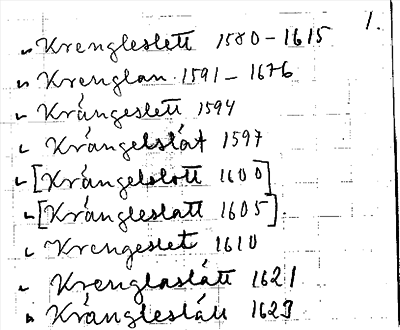 1.
" Krengleslett 1580-1615
" Krenglan 1591-1676
" Krångeslett 1594
" Krångelslåt 1597
" [Krångelslott 1600]
" [Krångleslatt 1605]
" Krengeslet 1610
" Krenglaslått 1621
" Krångleslått 1623